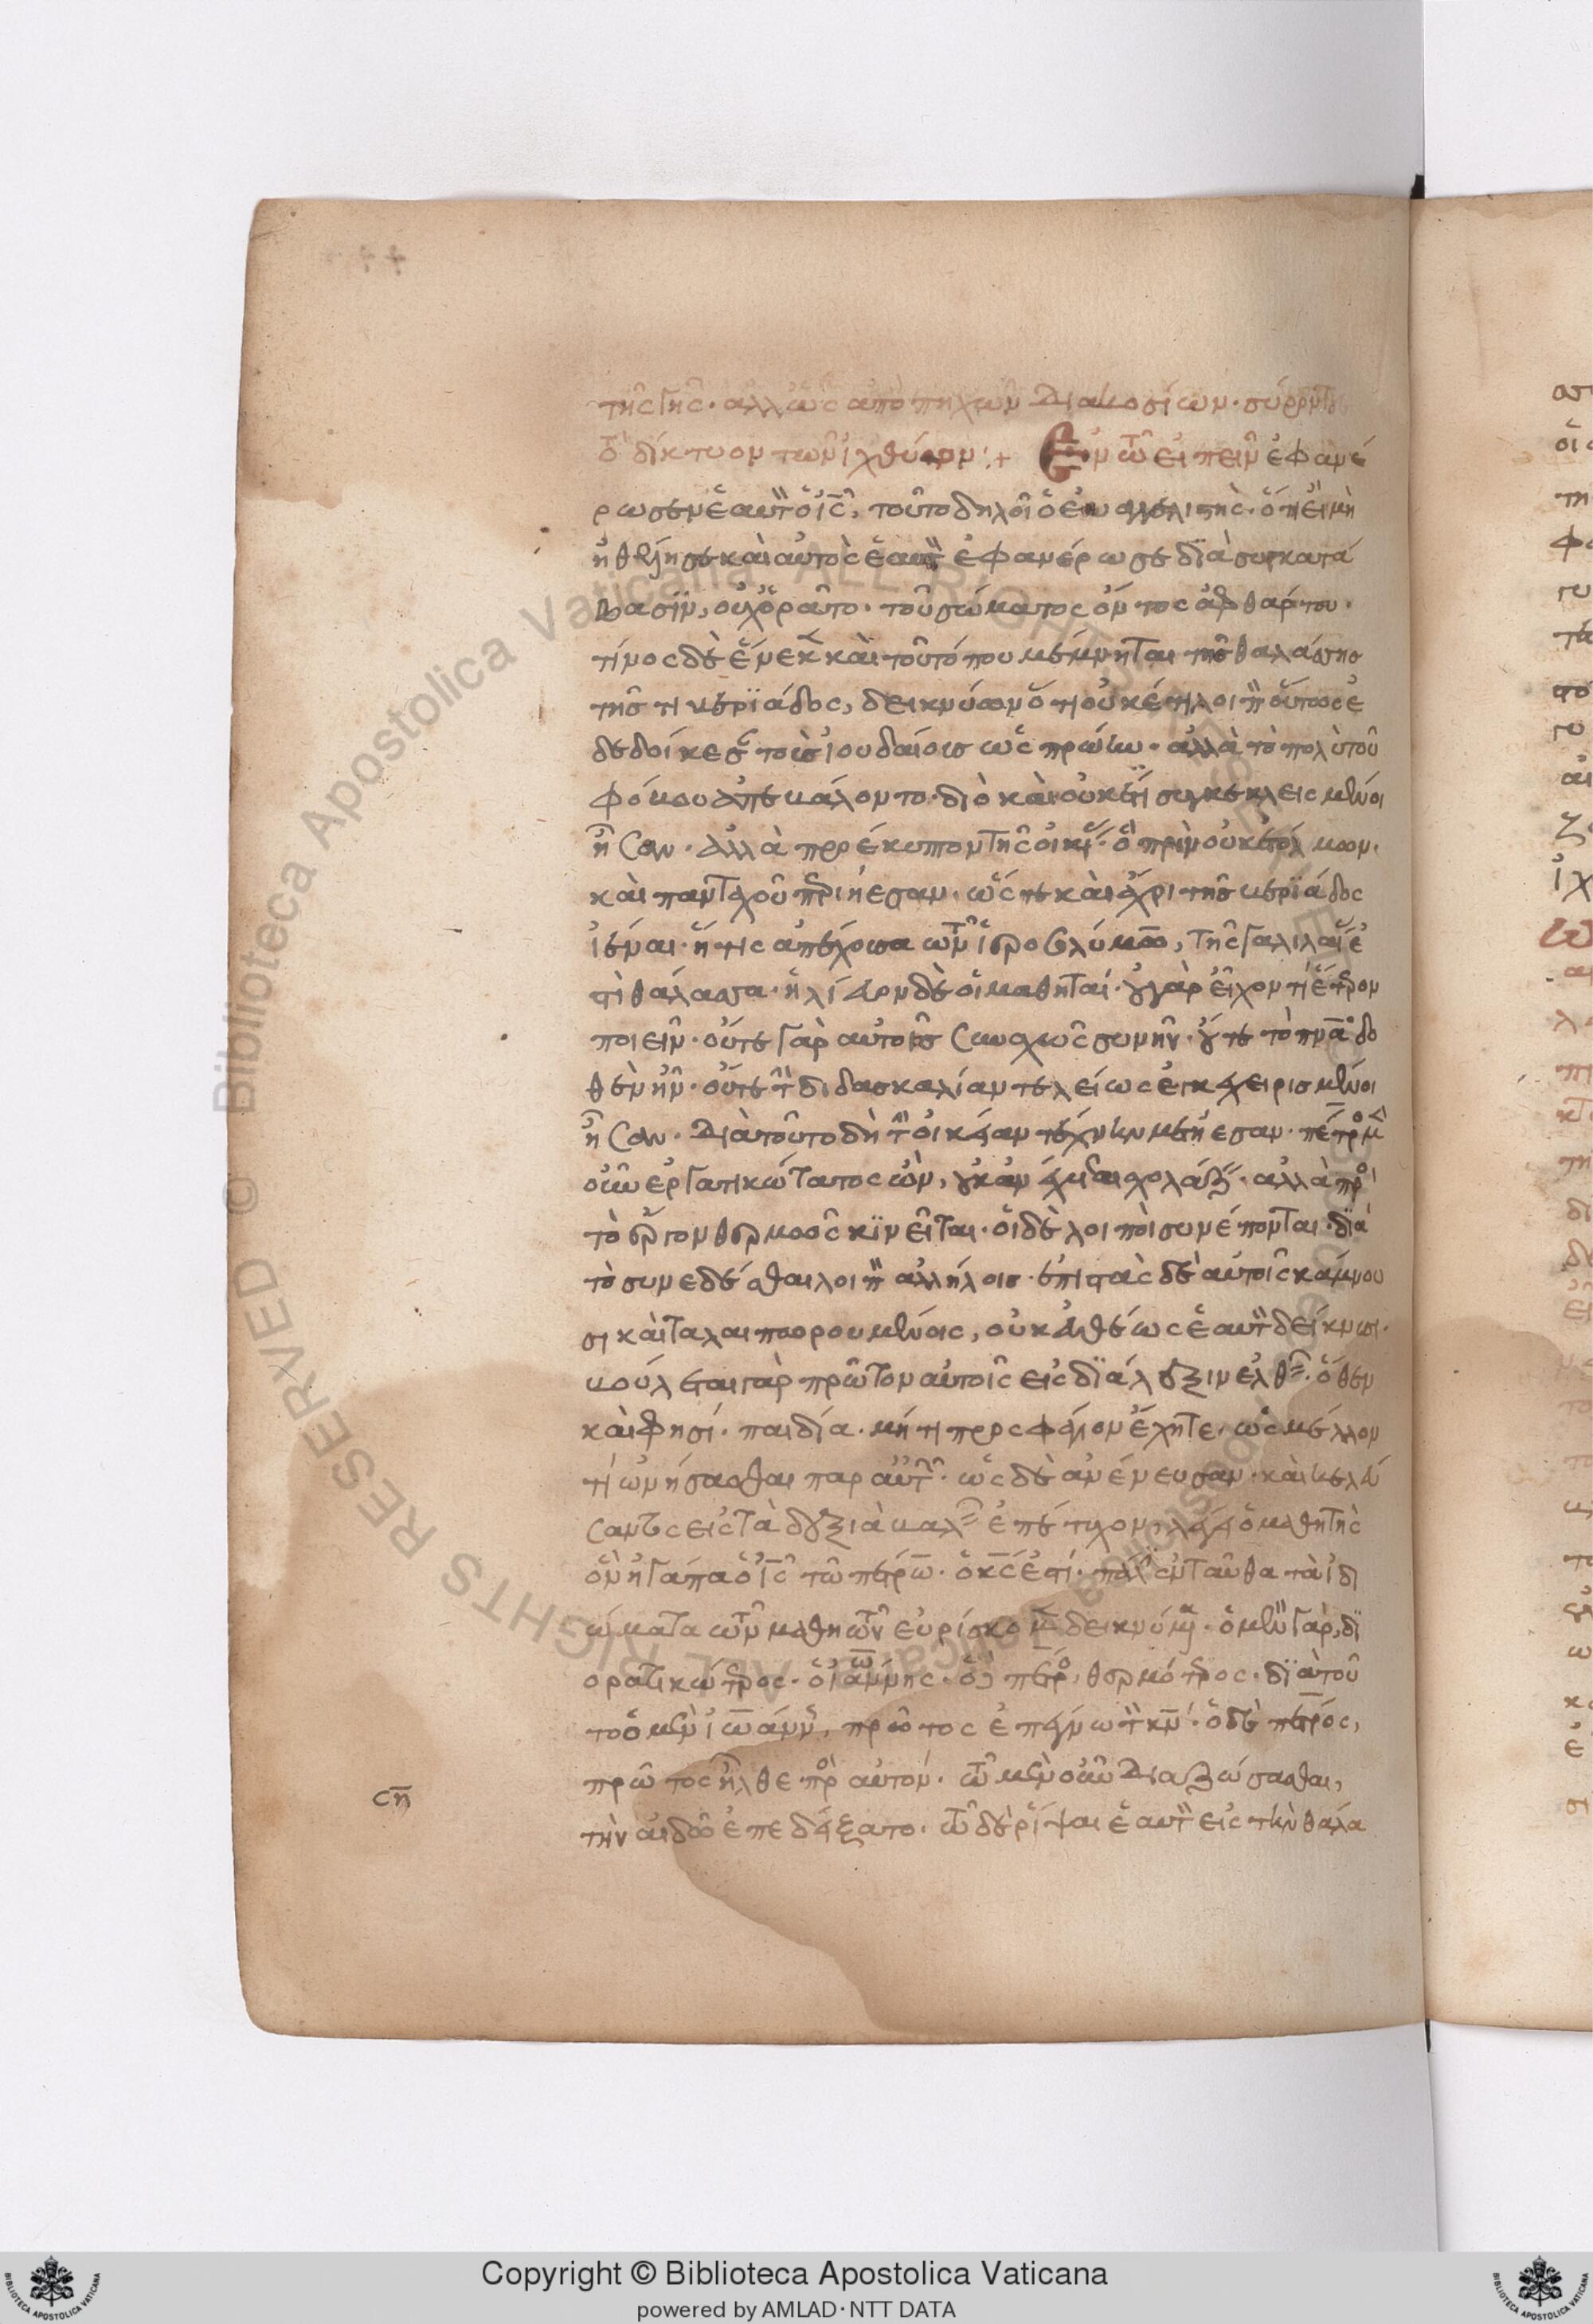 τῆς γῆς· ἀλλ' ὡς ἀπὸ πηχῶν διακοσίων· σύροντες
τὸ δίκτυον τῶν ἰχθύων:+ Ἐν τῶ εἰπεῖν ἐφανέ
ρωσεν ἑαυτὸν ὁ ις, τοῦτο δηλοῖ ὁ εὐαγγελιστὴς· ὅτι εἰ μὴ
ἠθέλησε καὶ αὐτὸς ἑαυτὸν ἐφανέρωσε διὰ συγκατά
βασιν, οὐχ ὁρᾶτο· τοῦ σώματος ὄντος ἀφθάρτου·
τίνος δὲ ἕνεκεν καὶ τοῦ τόπου μέμνηται τῆς θαλάσσης
τῆς τιβεριάδος, δεικνύων ὅτι οὐκέτι λοιπὸν οὕτως ἐ
δεδοίκεσαν τοὺς ἰουδαίους ὡς πρώην· ἀλλὰ τὸ πολὺ τοῦ
φόβου ἀπεβάλοντο· διὸ καὶ οὐκέτι συγκεκλεισμένοι
ἦσαν· ἀλλὰ προέκυπτον τῆς οἰκίας· ὃ πρὶν οὐκ ἐτόλμων·
καὶ πανταχοῦ περιῄεσαν· ὥς τε καὶ ἄχρι τῆς τιβεριάδος
ἰέναι· ἥτις ἀπέχουσα τῶν ἱεροσολύμων, τῆς γαλιλαίας ἐ
στὶ θάλασσα· ἡλίευον δὲ οἱ μαθηταί· οὐ γὰρ εἶχον τί ἕτερον
ποιεῖν· οὔτε γὰρ αὐτοῖς συνεχῶς συνῆν· οὔτε τὸ πνα δο
θὲν ἦν· οὔτε τὴν διδασκαλίαν τελείως ἐγκεχειρισμένοι
ἦσαν· διὰ τοῦτο δὴ τὴν οἰκείαν τέχνην μετῄεσαν· πέτρος μὲν
οὖν ἐργατικώτατος ὢν, οὐκ ἀνέχεται σχολάζειν· ἀλλὰ πρὸς
τὸ ἔργον θερμῶς κινεῖται· οἱ δὲ λοιποὶ συνέπονται· διὰ
τὸ συνεδέσθαι λοιπὸν ἀλλήλοις· ἐπιστὰς δὲ αὐτοῖς κάμνου
σι καὶ ταλαιπωρουμένοις, οὐκ εὐθέως ἑαυτὸν δείκνυσι·
βούλεται γὰρ πρῶτον αὐτοῖς εἰς διάλεξιν ἐλθεῖν· ὅθεν
καὶ φησί· παιδία· μή τι προσφάγιον ἔχητε· ὡς μέλλον
τι ὠνήσασθαι παρ' αὐτῶν· ὡς δὲ ἀνένευσαν· καὶ κελεύ
σαντος εἰς τὰ δεξιὰ βαλεῖν ἐπέτυχον, λέγει ὁ μαθητὴς
ὃν ἠγάπα ὁ ις τῶ πέτρω· ὁ κς ἐστί· πάλιν ἐνταῦθα τὰ ἰδι
ώματα τῶν μαθητῶν εὑρίσκομεν δεικνύμενα· ὁ μὲν γὰρ, δι
ορατικώτερος· ὁ ἰωάννης· ὁ δὲ πέτρος, θερμότερος· διὰ τοῦ
το ὁ μὲν ἰωάννης, πρῶτος ἐπέγνω τὸν κν· ὁ δὲ πέτρος,
πρῶτος ἦλθε πρὸς αὐτόν· τῶ μὲν οὖν διαζώσασθαι,
τὴν αἰδῶ ἐπεδείξατο· τῶ δὲ ῥίψαι ἑαυτὸν εἰς τὴν θάλα
ση
Copyright © Biblioteca Apostolica Vaticana
powered by AMLAD·NTT DATA